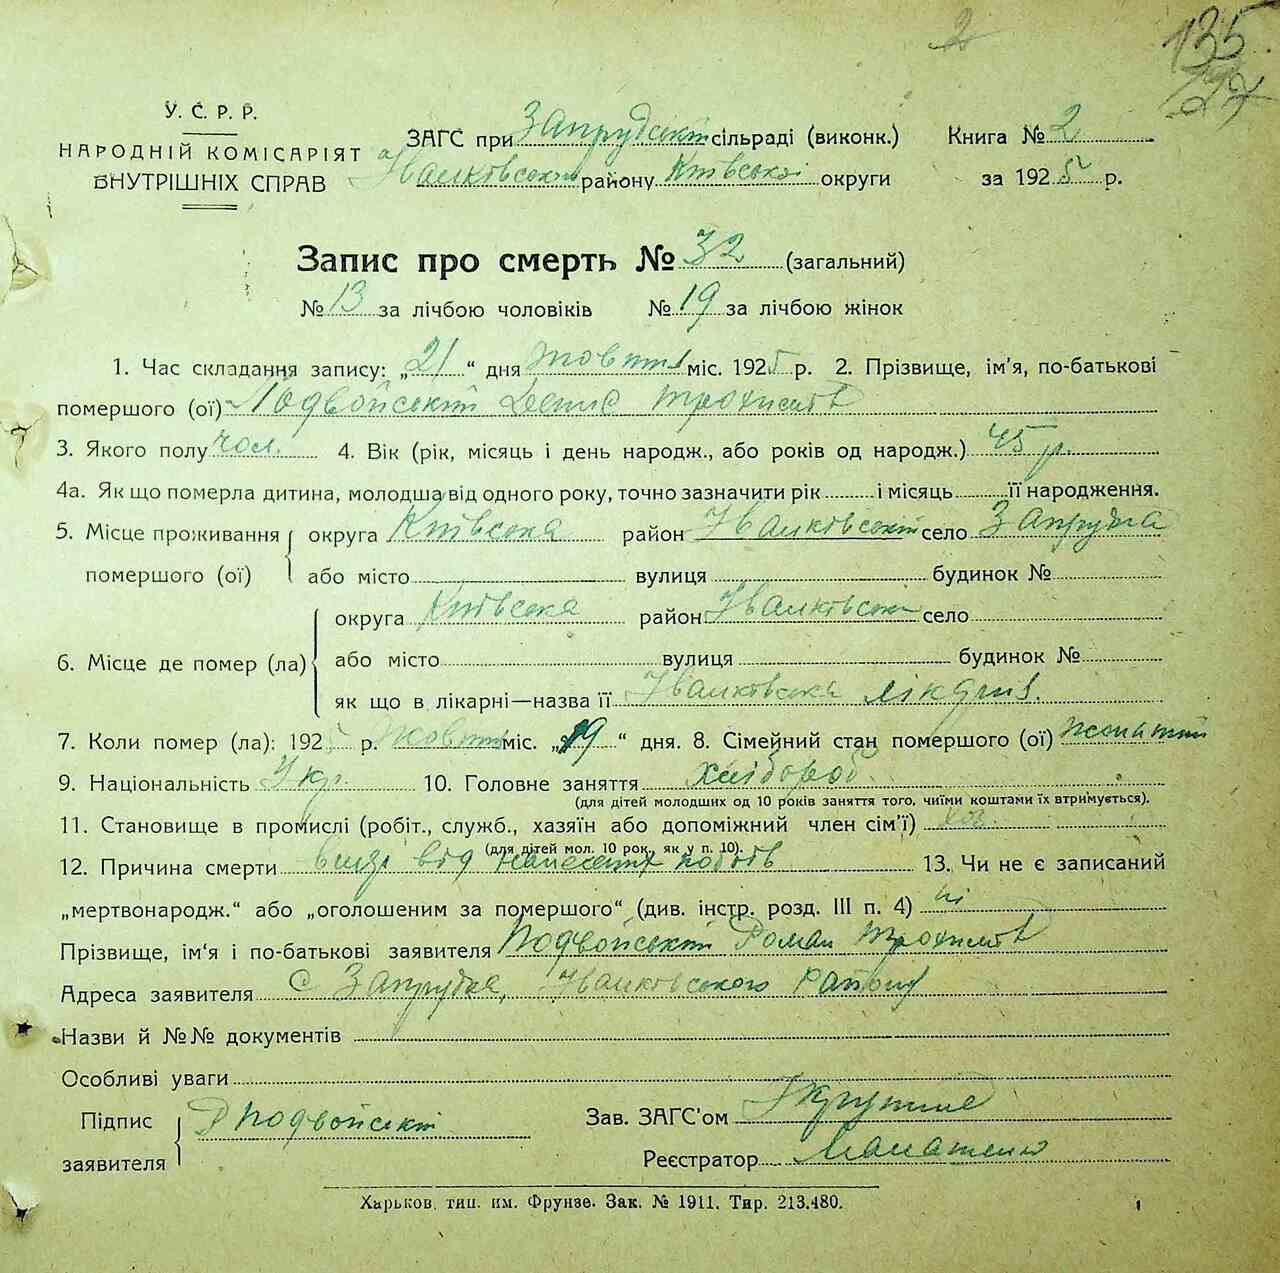 2
135
27
У. С. Р. Р.
НАРОДНІЙ КОМІСАРІЯТ
ВНУТРІШНІХ СПРАВ
ЗАГС при Запрудській сільраді (виконк.)
Іванковського району Київської округи
Книга № 2
за 1925 р.
Запис про смерть № 32 (загальний)
№ 13 за лічбою чоловіків № 19 за лічбою жінок
1. Час складання запису: „21“ дня Жовтня міс. 1925 р. 2. Прізвище, ім'я, по-батькові
помершого (ої) Подвойський Денис Трохимів
3. Якого полу чол. 4. Вік (рік, місяць і день народж., або років од народж.) 45 р.
4а. Як що померла дитина, молодша від одного року, точно зазначити рік і місяць її народження.
5. Місце проживання помершого (ої) округа Київська район Іванковський село Запрудка
або місто вулиця будинок №
6. Місце де помер (ла) округа Київська район Іванковський село
або місто вулиця будинок №
як що в лікарні—назва її Іванковська лікарня.
7. Коли помер (ла): 1925 р. Жовтня міс. „19“ дня. 8. Сімейний стан помершого (ої) жонатий
9. Національність Укр. 10. Головне заняття хлібороб.
(для дітей молодших од 10 років заняття того, чиїми коштами їх втримується).
11. Становище в промислі (робіт., служб., хазяїн або допоміжний член сім'ї) хоз.
(для дітей мол. 10 рок., як у п. 10).
12. Причина смерти від нанесених побоїв 13. Чи не є записаний
„мертвонародж.“ або „оголошеним за помершого“ (див. інстр. розд. III п. 4) ні
Прізвище, ім'я і по-батькові заявителя Подвойський Роман Трохимів
Адреса заявителя с Запрудка, Іванковського району
Назви й №№ документів
Особливі уваги
Підпис заявителя Р Подвойский
Зав. ЗАГС'ом
Реєстратор
Харьков, тип. им. Фрунзе. Зак. № 1911. Тир. 213.480.
1